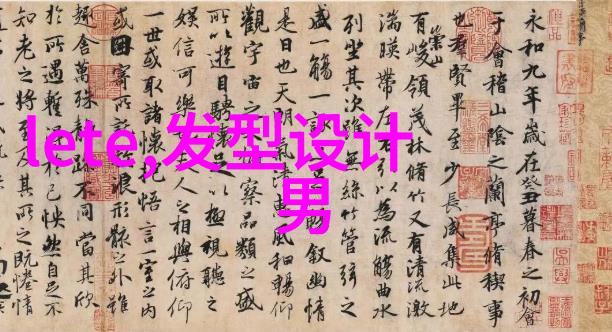 lete,发型设计
男
永和九年歲在癸丑暮春之初會
于會稽山陰之蘭亭脩稧事
也群賢畢至少長咸集此地
有崇山峻領茂林脩竹又有清流激
湍暎帶左右引以為流觴曲水
列坐其次雖無絲竹管弦之
盛一觴一詠足以敘幽情
是日也天朗氣清惠風和暢仰
觀宇宙之俯察品類之盛
所以遊目騁懷足以極視聽之
娛信可樂也夫人之相與俯仰
一世或取諸懷抱悟言一室之內
或因寄所託浪形骸之外雖
趣舍萬殊靜躁不同當其欣
於所遇暫得己怏然自足不
知老之將至及其所之既惓情